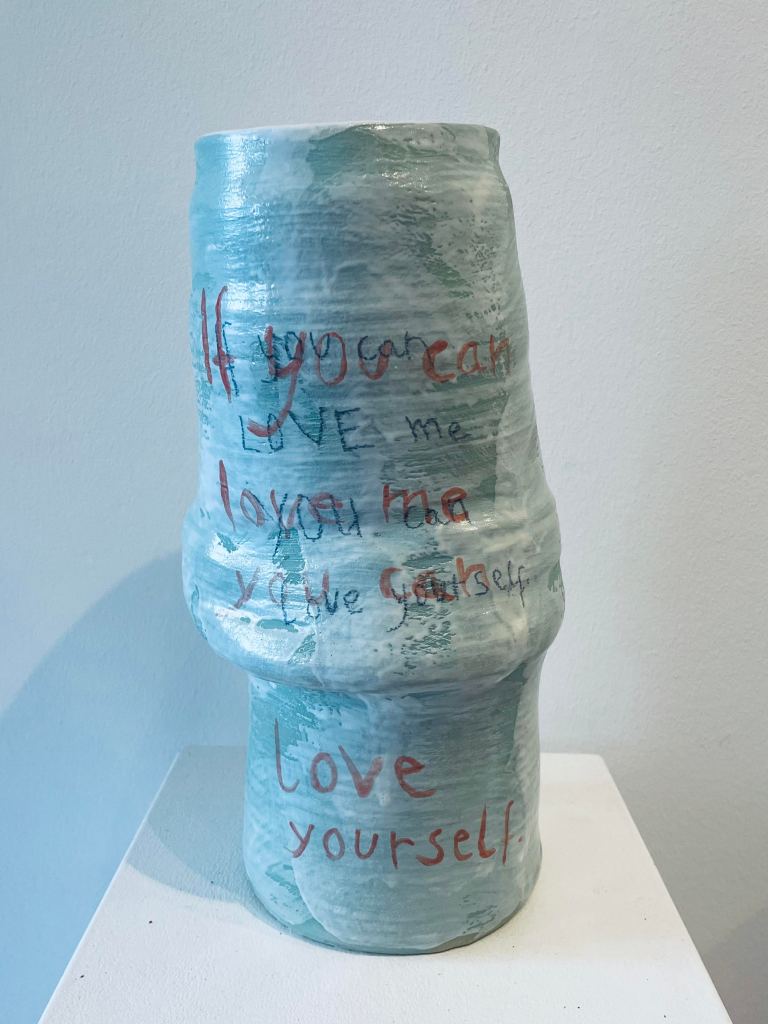 If you can
If you can
LOVE me
love me
you can
you can
Love yourself.
love
yourself.